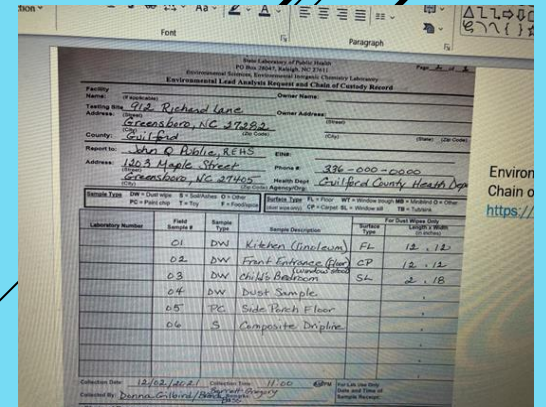 Font
Paragraph
State Laboratory of Public Health
PO Box 28047, Raleigh, NC 27611
Environmental Sciences, Environmental Inorganic Chemistry Laboratory
Environmental Lead Analysis Request and Chain of Custody Record
Facility Name: (If applicable) Owner Name:
Testing Site Address: 912 Richard Lane Owner Address:
(Street) (Street)
Greensboro, NC 27282
(City) (Zip Code) (City) (State) (Zip Code)
County: Guilford
Report to: John Q Public, REHS EIN#:
Address: 1203 Maple Street Phone #: 336-000-0000
(Street)
Greensboro, NC 27405 Health Dept Agency/Org: Guilford County Health Dep
(City) (Zip Code)
Sample Type DW = Dust wipe S = Soil/Ashes O = Other
PC = Paint chip T = Toy F = Food/spice
Surface Type FL = Floor WT = Window trough MB = Miniblind O = Other
(dust wipe only) CP = Carpet SL = Window sill TB = Tub/sink
For Dust Wipes Only
Laboratory Number Field Sample # Sample Type Sample Description Surface Type Length x Width (in inches)
01 DW Kitchen (linoleum) FL 12 , 12
02 DW Front Entrance (floor) CP 12 , 12
03 DW Child's Bedroom (window stool) SL 2 , 18
04 DW Dust Sample
05 PC Side Porch Floor
06 S Composite Dripline
Collection Date: 12/02/2021 Collection Time: 11:00
For Lab Use Only
Date and Time of Sample Receipt:
Collected By: Donna
Environ
Chain o
https://